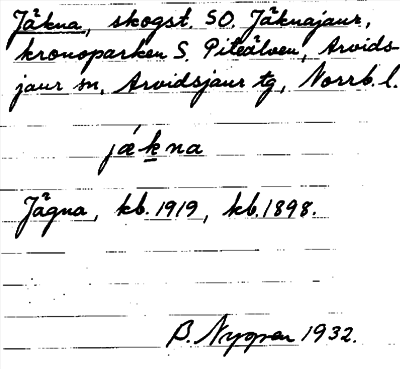 Jäkna, skogst. SO. Jäknajaur,
kronoparken S. Piteälven, Arvids-
jaur sn, Arvidsjaur tg, Norrb. l.
jækna
Jägna, kb. 1919, kb. 1898.
B. Nygren 1932.